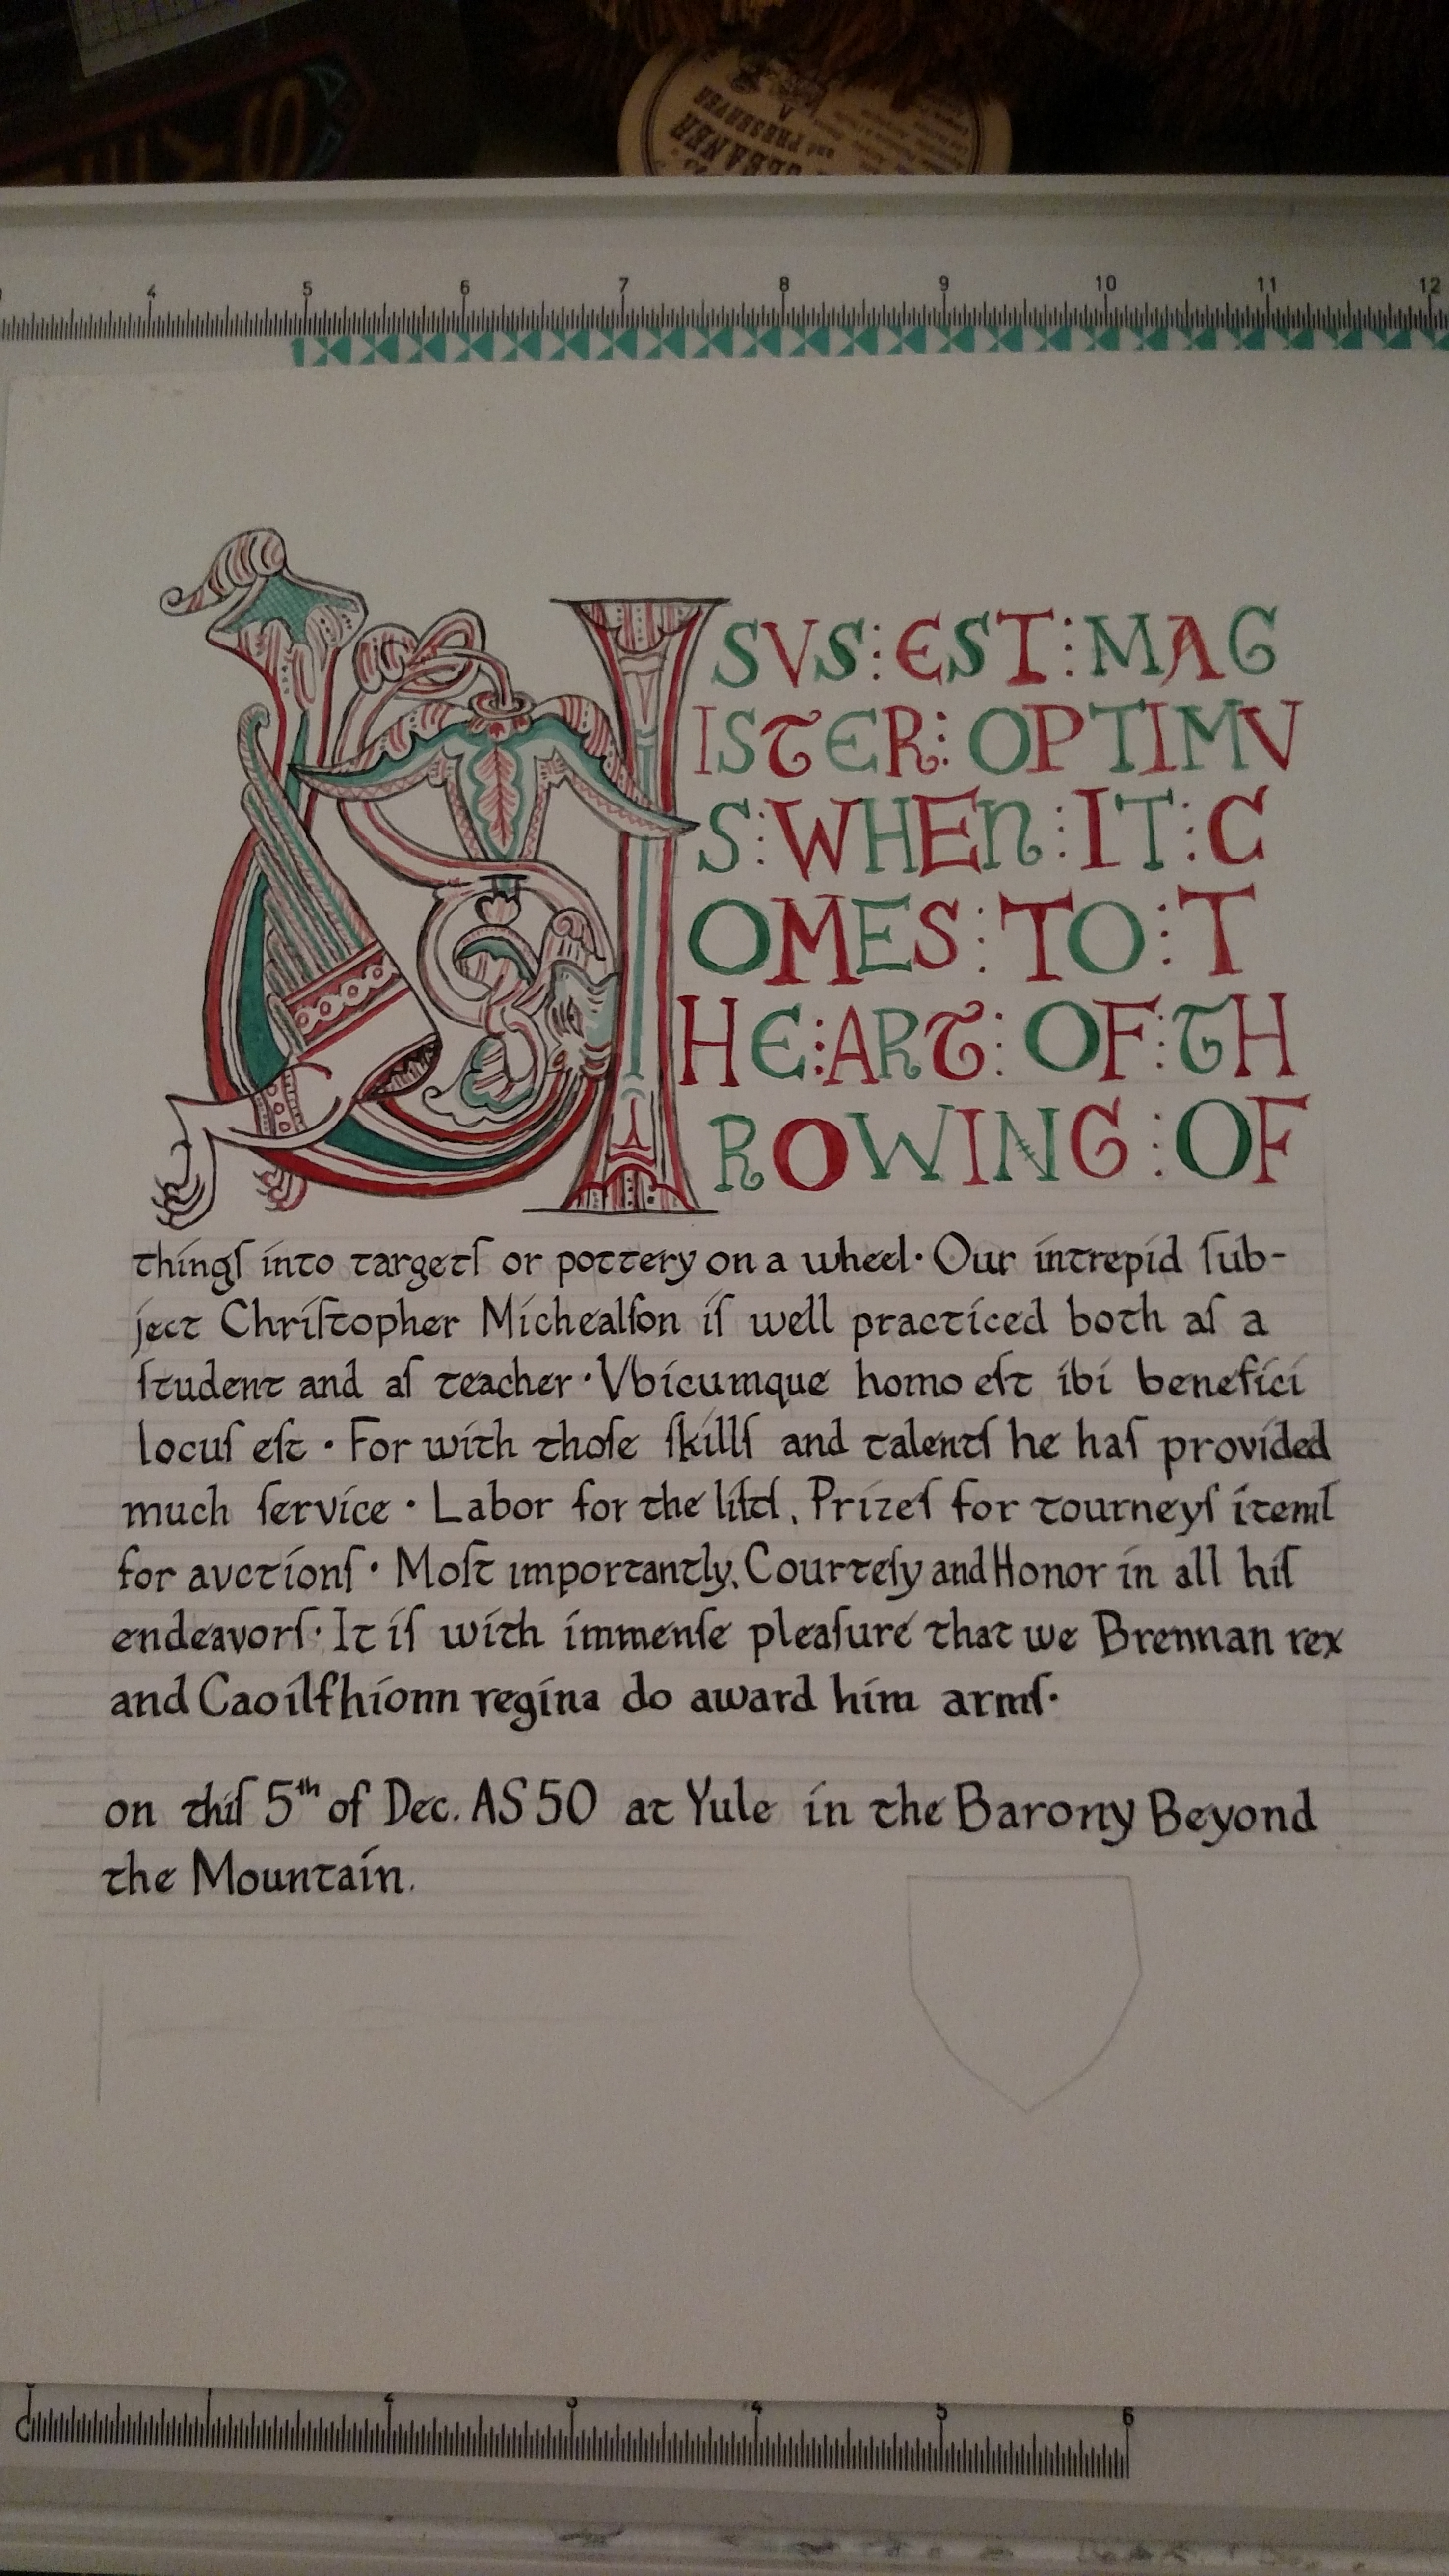 CLEANER
and PRESERVER
4 5 6 7 8 9 10 11 12
USVS:EST:MAG
ISTER:OPTIMV
S:WHEN:IT:C
OMES:TO:T
HE:ART:OF:TH
ROWING:OF
thingſ into targetſ or pottery on a wheel· Our intrepid ſub-
ject Chriſtopher Michealſon iſ well practiced both aſ a
ſtudent and aſ teacher· Vbicumque homo eſt ibi benefici
locuſ eſt · For with thoſe ſkillſ and talentſ he haſ provided
much ſervice · Labor for the liſtſ, Prizeſ for tourneyſ itemſ
for avctionſ · Moſt importantly, Courteſy and Honor in all hiſ
endeavorſ· It iſ with immenſe pleaſure that we Brennan rex
and Caoilfhionn regina do award him armſ·
on thiſ 5th of Dec. AS 50 at Yule in the Barony Beyond
the Mountain.
0 1 2 3 4 5 6